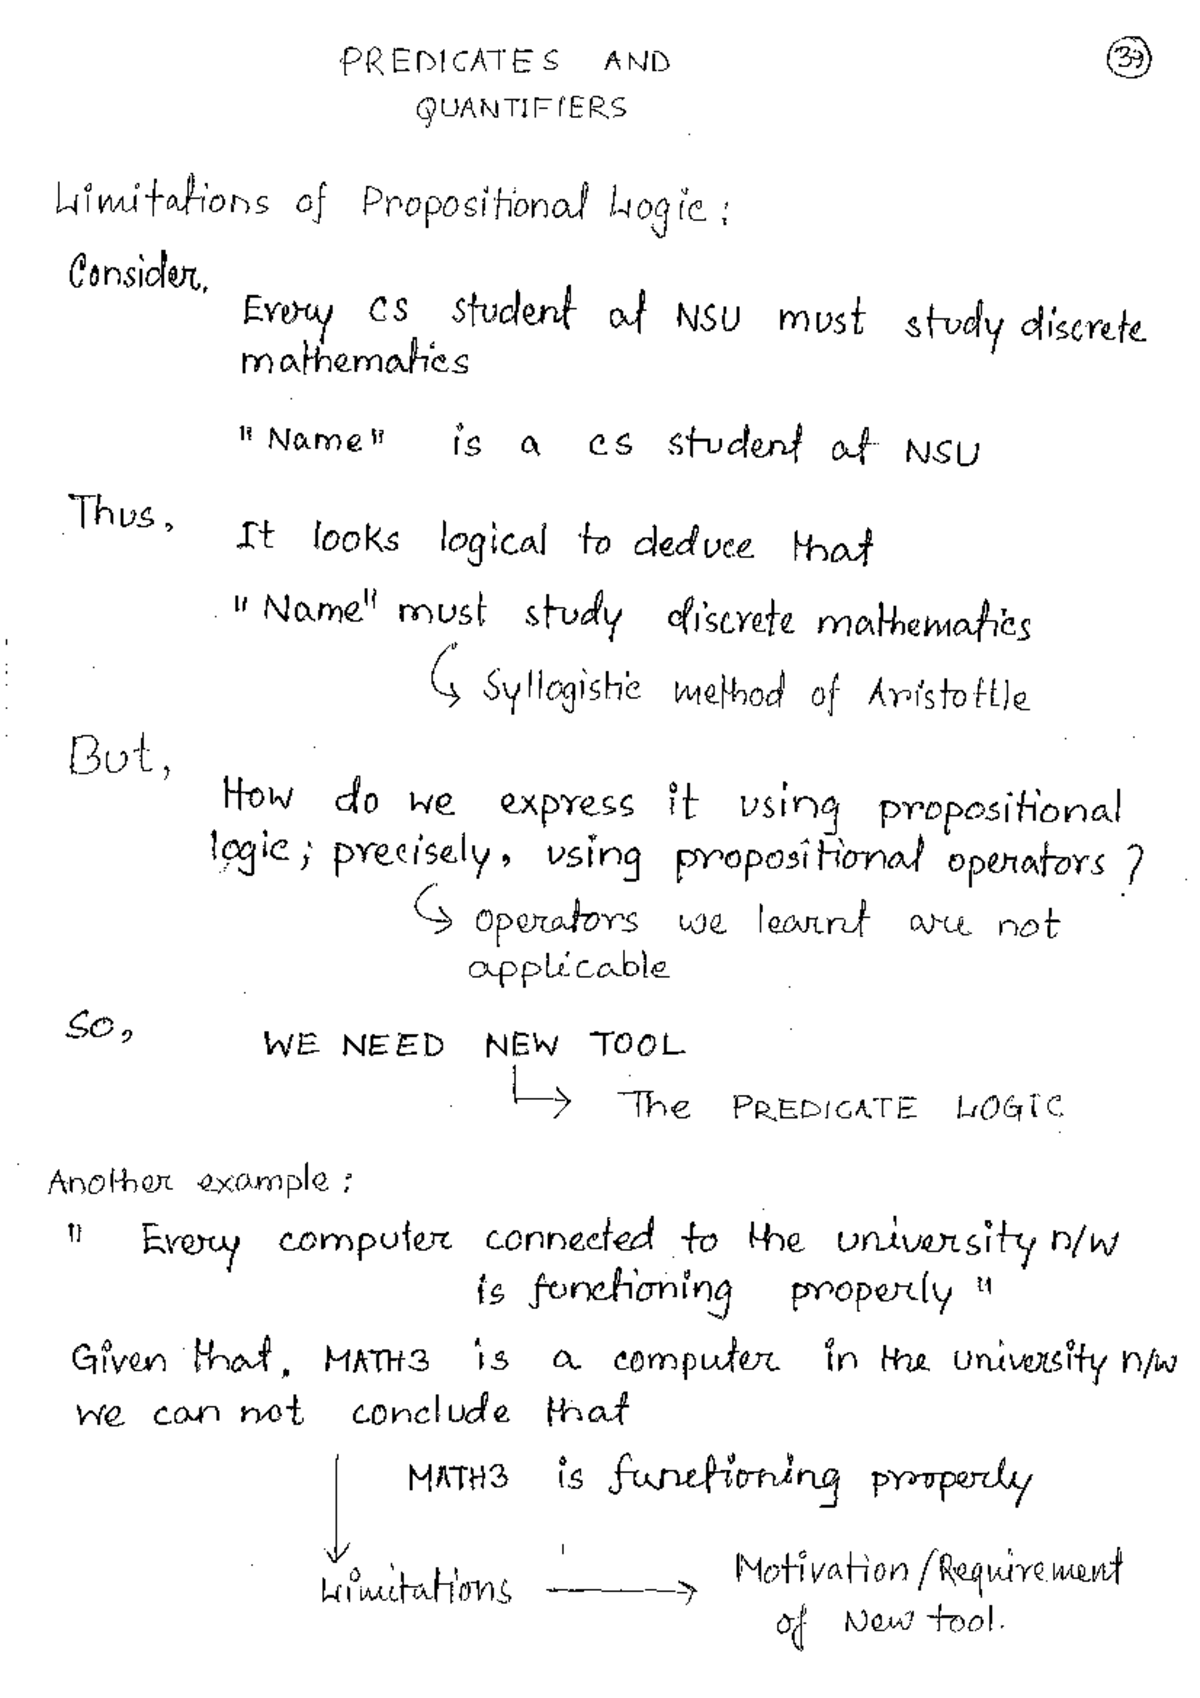 PREDICATES AND
39
QUANTIFIERS
Limitations of Propositional Logic:
Consider,
Every CS student at NSU must study discrete
mathematics
"Name" is a CS student at NSU
Thus,
It looks logical to deduce that
"Name" must study discrete mathematics
Syllogistic method of Aristottle
But,
How do we express it using propositional
logic; precisely, using propositional operators?
operators we learnt are not
applicable
So,
WE NEED NEW TOOL
The PREDICATE LOGIC
Another example:
" Every computer connected to the university n/w
is functioning properly "
Given that, MATH3 is a computer in the university n/w
we can not conclude that
MATH3 is functioning properly
Limitations
Motivation/Requirement
of New tool.